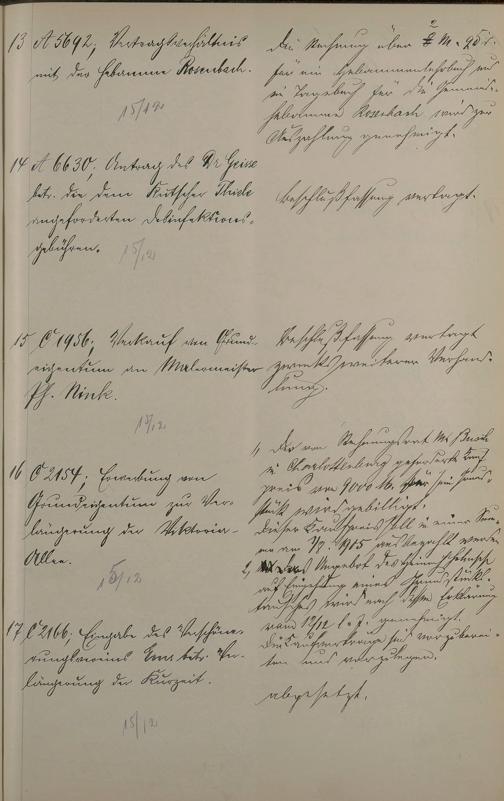 13 A 5692; Vertragsverhältnis
mit der Hebamme Rosenbach.
15/12
Die Rechnung über M. 25
für ein Hebammenlehrbuch und
ein Tagebuch für die Gemeinde-
hebamme Rosenbach wird zur
Auszahlung genehmigt.
14 A 6630; Antrag des Dr Geisse
betr. die dem Kutscher Thiele
angeforderten Desinfektions-
gebühren.
15/12
Beschlußfassung vertagt.
15 C 1956; Verkauf von Grund-
eigentum an Malermeister
Ph. Rink.
15/12
Beschlußfassung vertagt
zwecks weiterer Verhand-
lung.
16 C 2154; Erwerbung von
Grundeigentum zur Ver-
längerung der Viktoria-
Allee.
15/12
1, Der von Rechnungsrat
in Charlottenburg geforderte Kauf-
preis von 9000 M. für sein Haus-
stück wird gebilligt.
Dieser Kaufpreis soll in einer Sum-
me am 1/7. 1915 ausbezahlt werden.
2, Das Angebot des
auf Eingehung eines Grundstücks-
tausches wird nach dessen Erklärung
vom 12/12 l. J. genehmigt.
Die Kaufverträge sind vorzuberei-
ten und vorzulegen.
17 C 2166; Eingabe des Verschöne-
rungsvereins Ems betr. Ver-
längerung der Kurzeit.
15/12
abgesetzt.